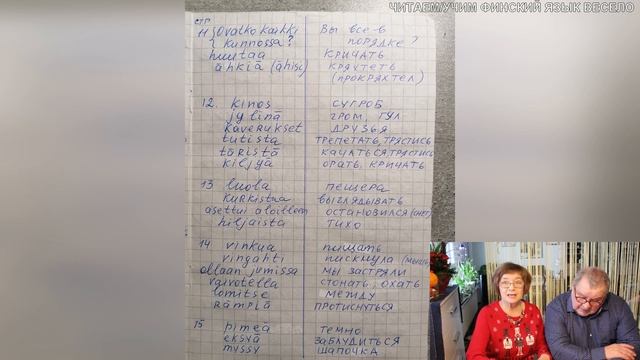 ЧИТАЕМ/УЧИМ ФИНСКИЙ ЯЗЫК ВЕСЕЛО
стр
11 Ovatko kaikki Вы все в
kunnossa? порядке?
huutaa кричать
ähkiä (ähisi) кряхтеть
(прокряхтел)
12. kinos сугроб
jylinä гром, гул
kaverukset друзья
tutista трепетать, трястись
täristä качаться, трястись
kiljyä орать, кричать
13 luola пещера
kurkistaa выглядывать
asettui aloilleen остановился (снег)
hiljaista тихо
14 vinkua пищать
vingahti пискнула
ollaan jumissa мы застряли
vaivotella стонать, охать
lomitse между
rämpiä протиснуться
15 pimeä темно
eksyä заблудиться
myssy шапочка